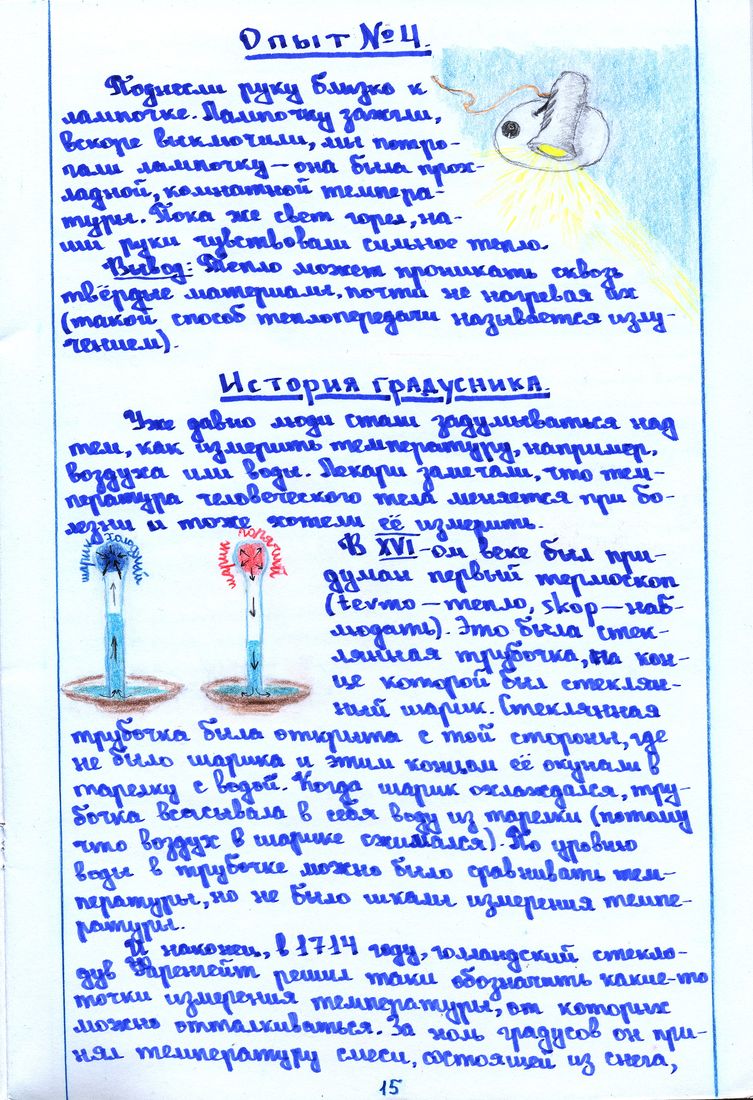 Опыт №4.
Поднесли руку близко к
лампочке. Лампочку зажгли,
вскоре выключили, мы потро-
гали лампочку — она была прох-
ладной, комнатной темпера-
туры. Пока же свет горел, на-
ши руки чувствовали сильное тепло.
Вывод: Тепло может проникать сквозь
твёрдые материалы, почти не нагревая их
(такой способ теплопередачи называется излу-
чением).
История градусника.
Уже давно люди стали задумываться над
тем, как измерить температуру, например,
воздуха или воды. Лекари замечали, что тем-
пература человеческого тела меняется при бо-
лезни и тоже хотели её измерить.
шарик холодный
шарик горячий
В XVI-ом веке был при-
думан первый термоскоп
(tevmo — тепло, skop — наб-
людать). Это была стек-
лянная трубочка, на кон-
це которой был стеклян-
ный шарик. Стеклянная
трубочка была открыта с той стороны, где
не было шарика и этим концом её окунали в
тарелку с водой. Когда шарик охлаждался, тру-
бочка всасывала в себя воду из тарелки (потому
что воздух в шарике сжимался). По уровню
воды в трубочке можно было сравнивать тем-
пературы, но не было шкалы измерения темпе-
ратуры.
И наконец, в 1714 году, голландский стекло-
дув Фаренгейт решил таки обозначить какие-то
точки измерения температуры, от которых
можно отталкиваться. За ноль градусов он при-
нял температуру смеси, состоящей из снега,
15